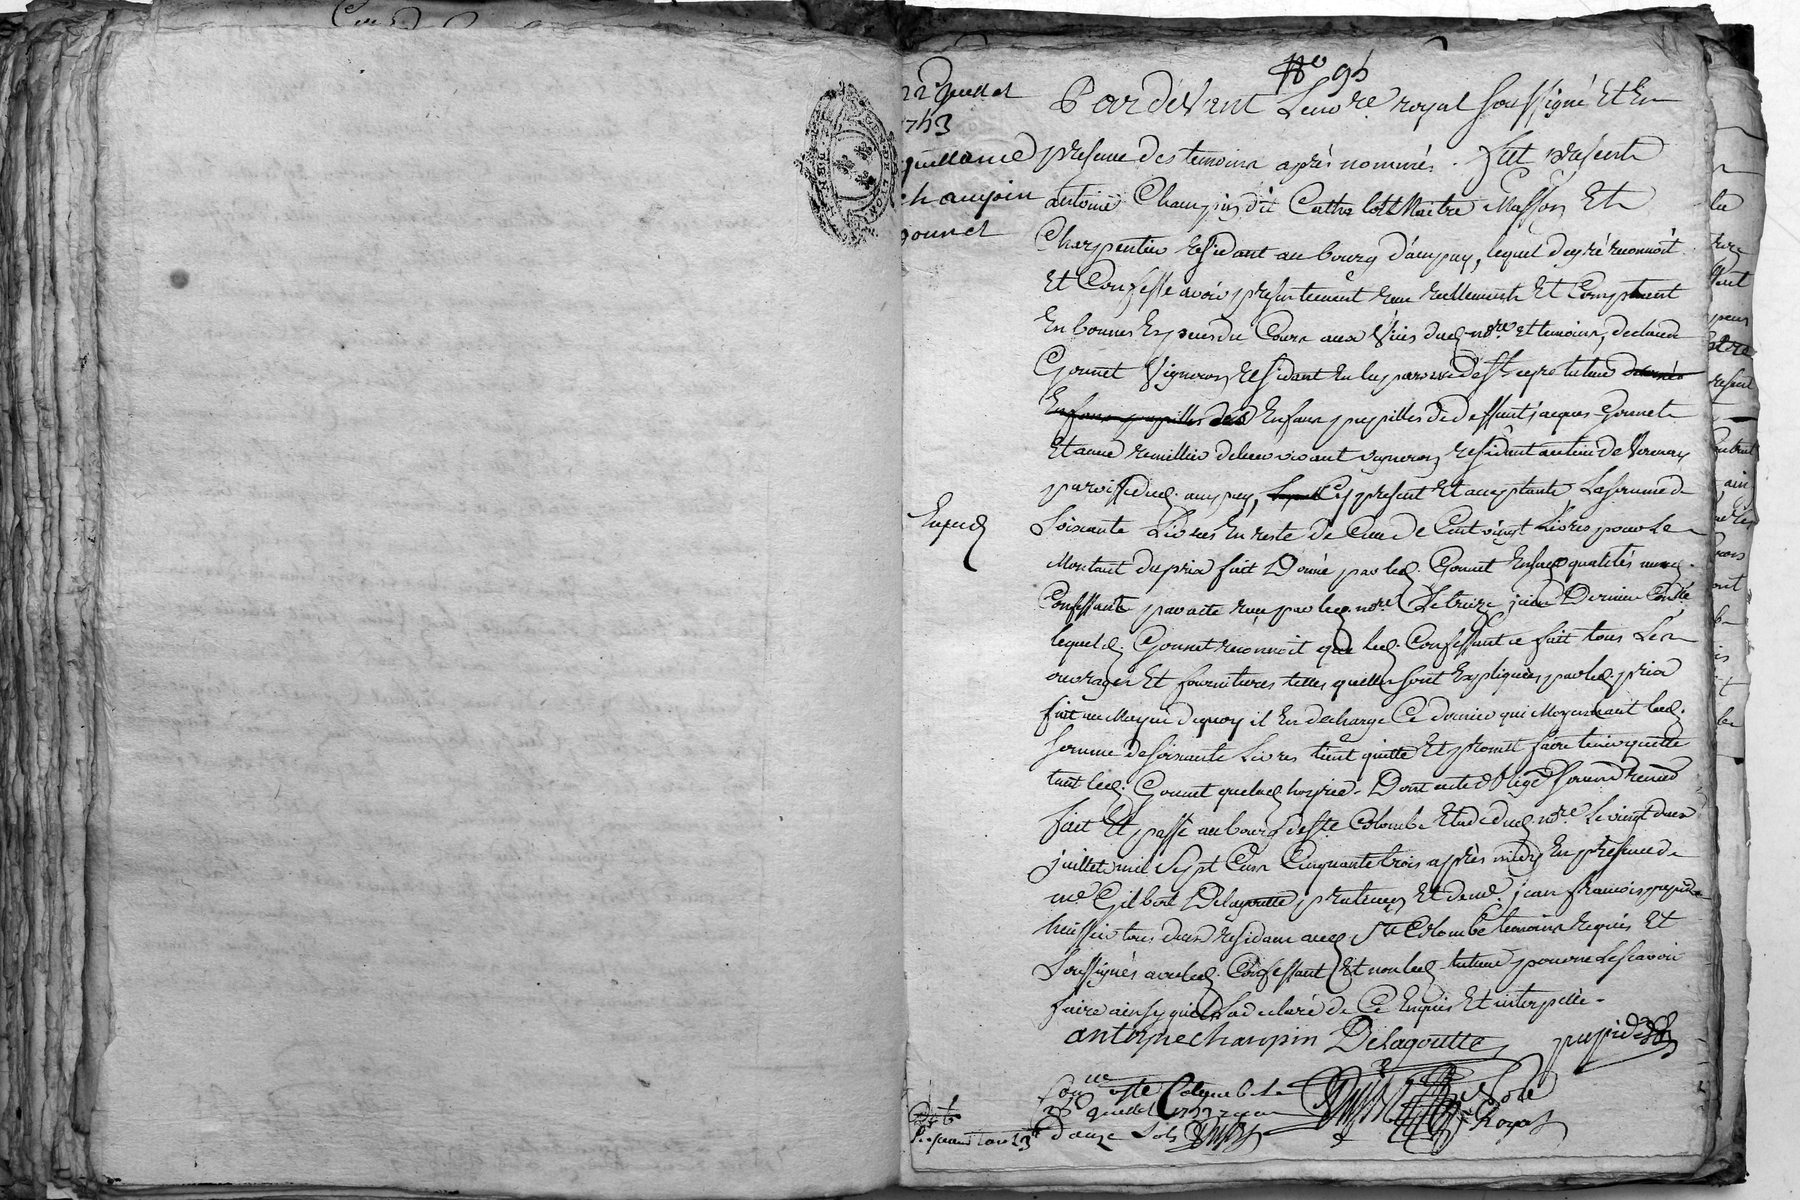 No 95
22 Juillet
1753
quittance
champin
gonnet
Par devant Le no.re royal soussigné Et En
presence des temoins après nommés. fut présent
antoine Champin dit Catha Maitre Masson Et
Charpentier residant au bourg d'ampuy, lequel de gré reconnoit
Et Confesse avoir presentement reçu reellement Et Comptant
En bonnes Especes du Cours aux Vües dud. no.re et temoins, de claude
Gonnet Vigneron residant En la parroisse tuteur
Enfans pupilles de Enfans pupilles de deffunt jacques Gonnet
Et anne remillier de leur vivant vignerons résidant au lieu de Verenay
paroisse dud. ampuy, Cy present Et acceptant, La somme de
Exped.
Soixante Livres En reste de Celle de Cent vingt Livres pour Le
Montant du prix fait Donné par led. Gonnet Esd. qualités aud.
Confessant par acte reçu par led. no.re Le treize juin Dernier Conté
lequel d. Gonnet reconnoit que led. Confessant a fait tous Les
ouvrages Et fournitures telles quelles sont Expliquées par led. prix
fait au Moyen de quoy il En decharge Ce dernier qui Moyennant lad.
somme de soixante Livres tient quitte Et promet faire tenir quitte
tant led. Gonnet que lad. hoyrie. Dont acte
fait Et passé au bourg de Ste Colombe Etude dud. no.re Le vingt deux
juillet mil Sept Cent Cinquante trois après midy En presence de
me Gilbert Delagoutte praticien Et de me. jean francois pupide
huissier tous deux residans aud. Ste Colombe temoins requis Et
Soussignés avec led. Confessant Et non led. tuteur pour ne Le scavoir
faire ainsy quil a declaré de Ce Enquis Et interpellé.
antoyne champin Delagoutte pupide
Con.lle a Ste Colombe Le
28 Juillet 1753 reçu
douze sols
No.re Royal